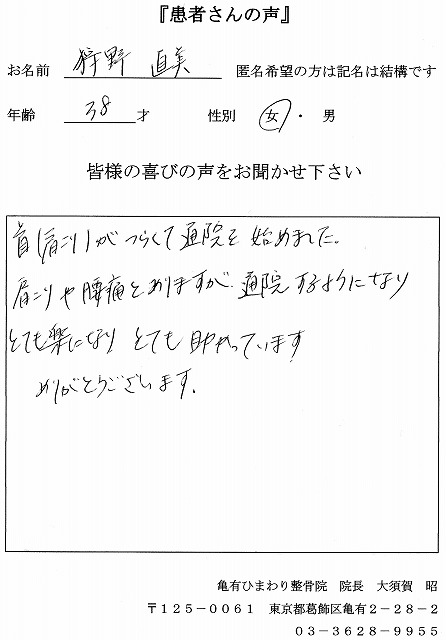 『患者さんの声』
お名前 狩野 直美 匿名希望の方は記名は結構です
年齢 38 才 性別 女 ・ 男
皆様の喜びの声をお聞かせ下さい
首(肩こり)がつらくて通院を始めました。
肩こりや腰痛とありますが通院するようになり
とても楽になりとても助かっています
ありがとうございます.
亀有ひまわり整骨院 院長 大須賀 昭
〒125-0061 東京都葛飾区亀有2-28-2
03-3628-9955